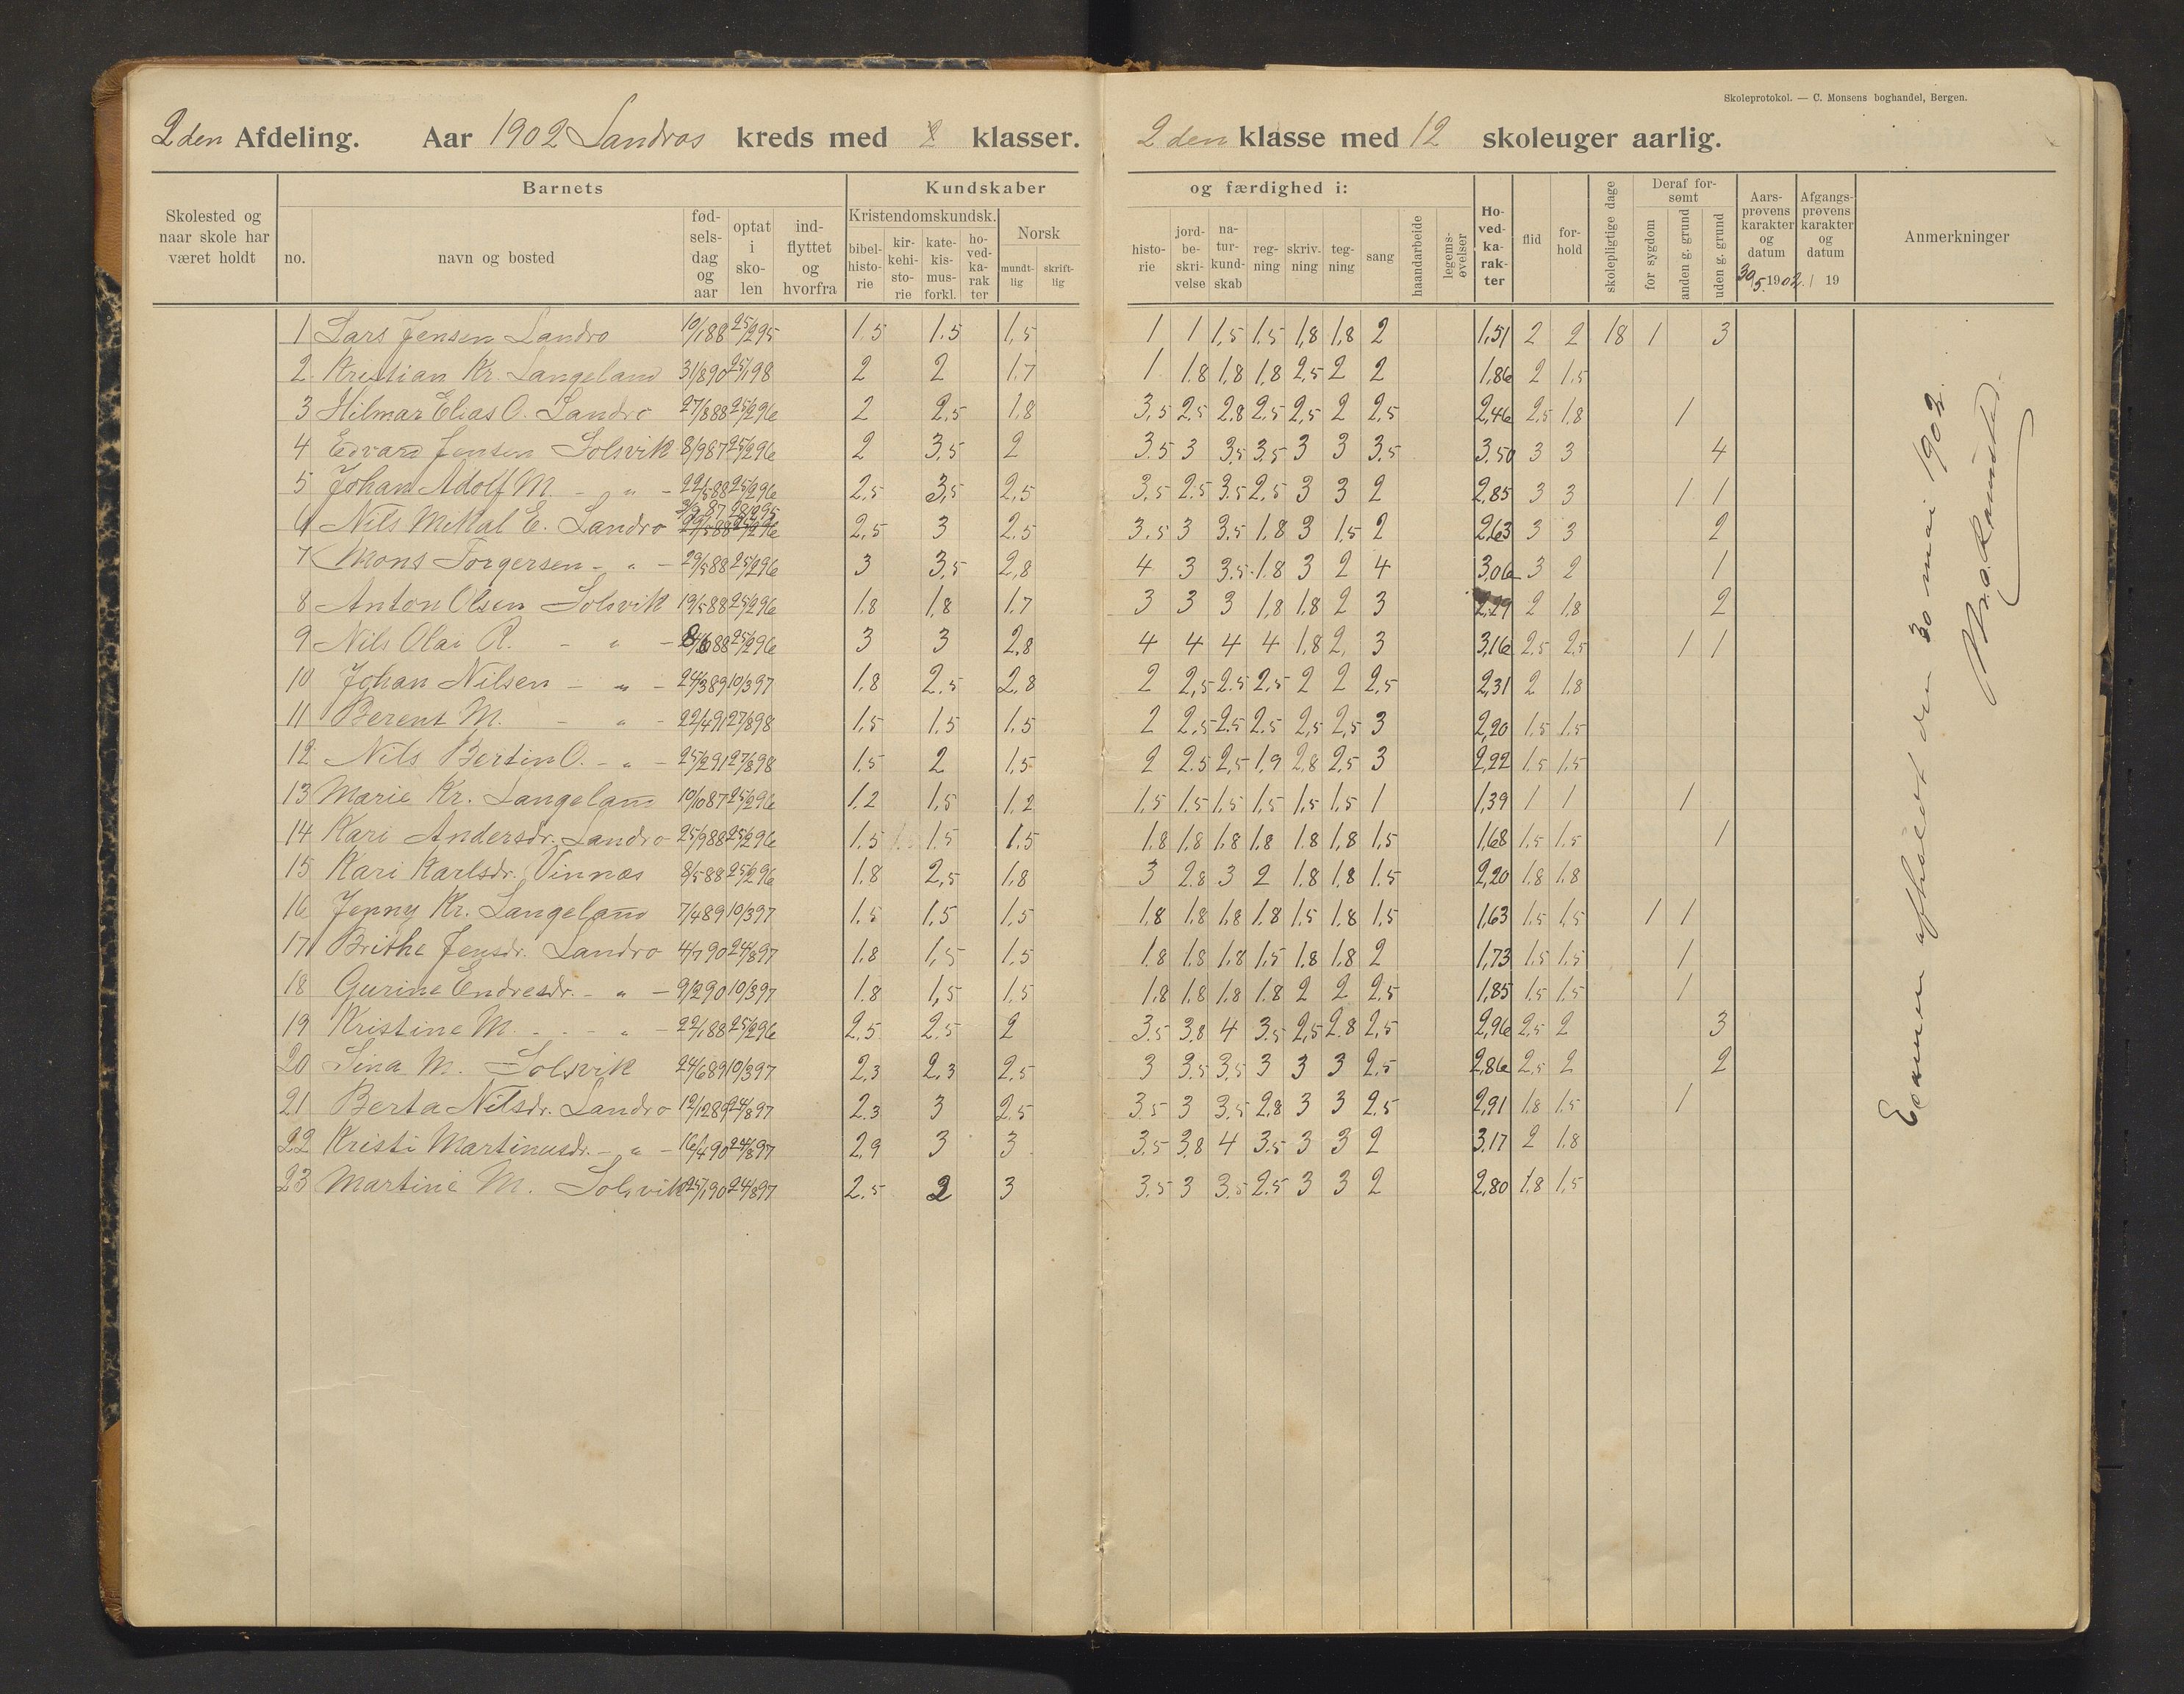 Skoleprotokol. — C. Monsens boghandel, Bergen.
2den Afdeling. Aar 1902 Landros kreds med 2 klasser. 2den klasse med 12 skoleuger aarlig.
Skolested og naar skole har været holdt
Barnets
no. navn og bosted fødselsdag og aar optat i skolen indflyttet og hvorfra
Kundskaber og færdighed i:
Kristendomskundsk. bibelhistorie kirkehistorie katekismus forkl. hovedkarakter
Norsk mundtlig skriftlig
historie jordbeskrivelse naturkundskab regning skrivning tegning sang haandarbeide legemsøvelser
Hovedkarakter flid forhold skolepligtige dage
Deraf forsømt for sygdom anden g. grund uden g. grund
Aarsprøvens karakter og datum 30/5 1902
Afgangsprøvens karakter og datum / 19
Anmerkninger
1 Lars Jensen Landro 10/1 88 25/2 95 1.5 1.5 1,5 1 1 1,5 1.5 1,8 1,8 2 1,51 2 2 18 1 3
2 Kristian Kr. Langeland 31/8 90 25/1 98 2 2 1.7 1 1.8 1,8 1,8 2,5 2 2 1,86 2 1.5
3 Hilmar Elias O. Landro 27/8 88 25/2 96 2 2,5 1,8 3.5 2.5 2.8 2.5 2,5 2 2,5 2,46 2,5 1.8 1
4 Edvard Jensen Solsvik 8/9 87 25/2 96 2 3,5 2 3.5 3 3,5 3.5 3 3 3.5 3.50 3 3 4
5 Johan Adolf M. - „ - 22/5 88 25/2 96 2,5 3,5 2,5 3,5 2.5 3.5 2,5 3 3 2 2,85 3 3 1 1
6 Nils Mikal E. Landro 3/9 87 28/2 95 2,5 3 2.5 3.5 3 3.5 1.8 3 1.5 2 2,63 3 3 2
7 Mons Torgersen - „ - 29/5 88 25/2 96 3 3,5 2,8 4 3 3.5 1.8 3 2 4 3,06 3 2 1
8 Anton Olsen Solsvik 19/5 88 25/2 96 1.8 1,8 1.7 3 3 3 1,8 1.8 2 3 2,29 2 1.8 2
9 Nils Olai R. - „ - 88 25/2 96 3 3 2,8 4 4 4 4 1.8 2, 3 3,16 2,5 2.5 1 1
10 Johan Nilsen - „ - 24/3 89 10/3 97 1,8 2.5 2,8 2 2,5 2.5 2,5 2 2 2,5 2,31 2 1.8
11 Berent M. - „ - 22/4 91 27/8 98 1,5 1.5 1,5 2 2.5 2.5 2.5 2,5 2,5 3 2,20 1.5 1.5
12 Nils Bertin O. - „ - 25/2 91 27/8 98 1.5 2 1,5 2 2.5 2,5 1,9 2,8 2,5 3 2,22 1.5 1.5
13 Marie Kr. Langeland 10/10 87 25/2 96 1.2 1,5 1,2 1.5 1.5 1.5 1.5 1,5 1.5 1 1,39 1 1 1
14 Kari Andersdr. Landro 25/9 88 25/2 96 1.5 1.5 1.5 1.8 1.8 1.8 1,8 1.8 1,8 1,5 1,68 1.5 1.5 1
15 Kari Karlsdr. Vinnæs 8/5 88 25/2 96 1.8 2,5 1,8 3 2.8 3 2 1.8 1.8 1.5 2,20 1.8 1.8
16 Jenny Kr. Langeland 7/4 89 10/3 97 1.5 1.5 1,5 1.8 1.8 1.8 1.8 1.5 1.8 1,5 1,63 1.5 1,5 1 1
17 Brithe Jensdr. Landro 4/7 90 24/8 97 1.8 1,5 1.5 1.8 1.8 1.8 1.5 1.8 1.8 2 1,73 1.5 1.5 1
18 Gurine Endresdr. - „ - 9/2 90 10/3 97 1.8 1,5 1.5 1.8 1.8 1.8 1.8 2 2 2.5 1,85 1.5 1.5 1
19 Kristine M. - „ - 22/1 88 25/2 96 2.5 2.5 2 3.5 3,8 4 3.5 2,5 2.8 2,5 2,96 2,5 2 3
20 Lina M. Solsvik 24/6 89 10/3 97 2,3 2,3 2,5 3 3.5 3,5 3 3 3 2.5 2,86 2,5 2 2
21 Berta Nilsdr. Landro 12/12 89 24/8 97 2.3 3 2.5 3.5 3 3,5 2,8 3 3 2.5 2,91 1.8 1.5 1
22 Kristi Martinusdr. - „ - 16/4 90 24/8 97 2,9 3 3 3.5 3,8 4 3.5 3 3 2 3,17 2 1.8
23 Martine M. Solsvik 25/1 90 24/8 97 2.5 2 3 3.5 3 3.5 2.5 3 3 2 2,80 1.8 1,5
Examen afholdt den 30 mai 1902.